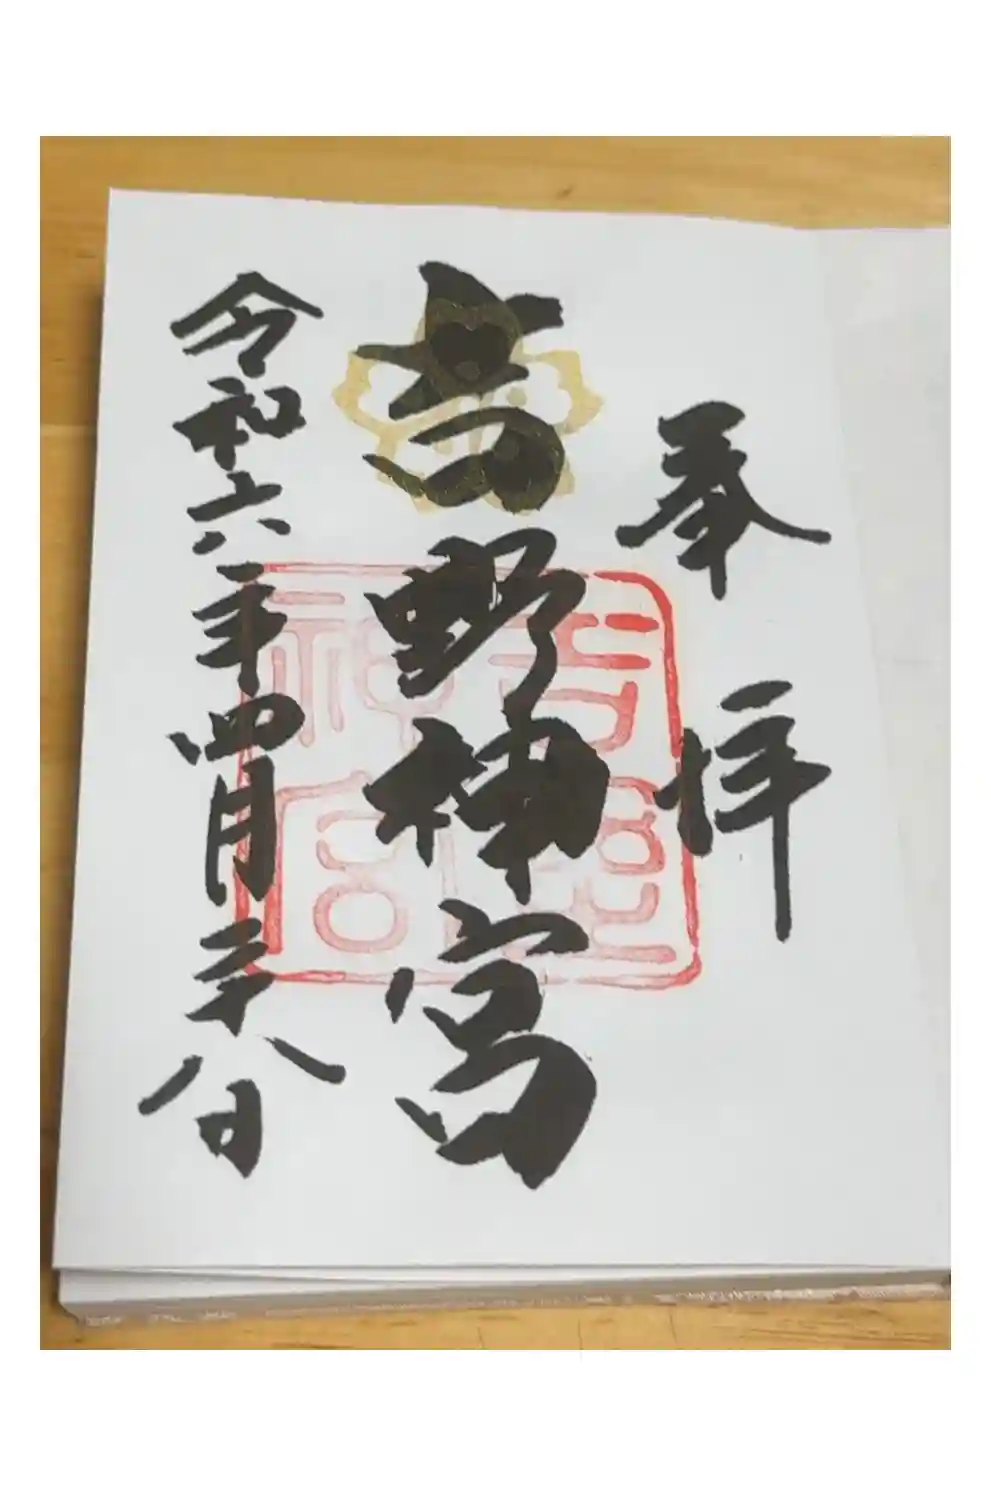 奉拝
吉野神宮
吉野
神宮
令和六年四月二十八日